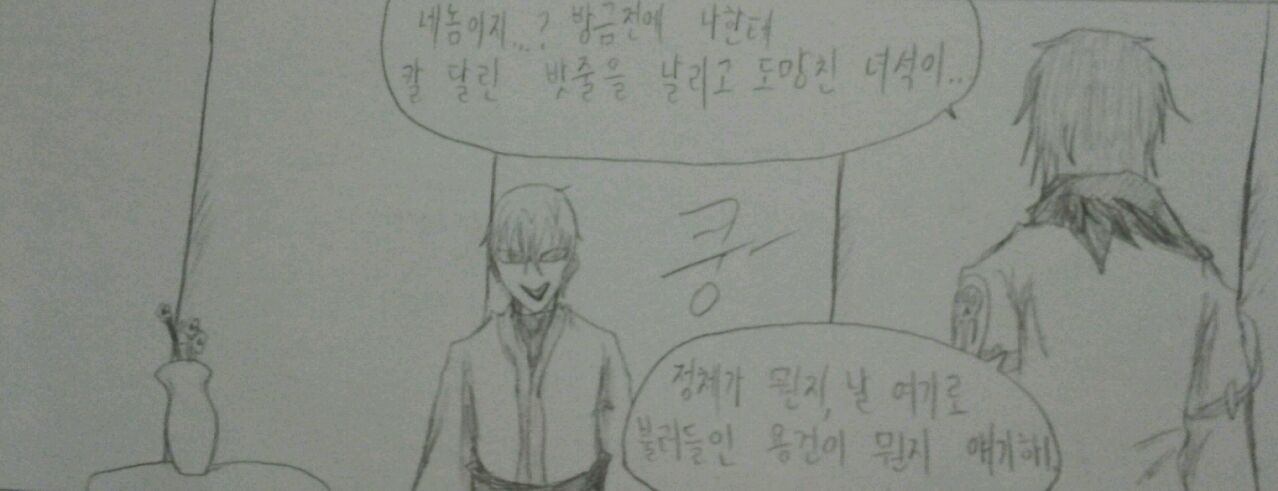 네놈이지...? 방금전에 나한테
칼 달린 밧줄을 날리고 도망친 녀석이..
쿵
정체가 뭔지, 날 여기로
불러들인 용건이 뭔지 얘기해.